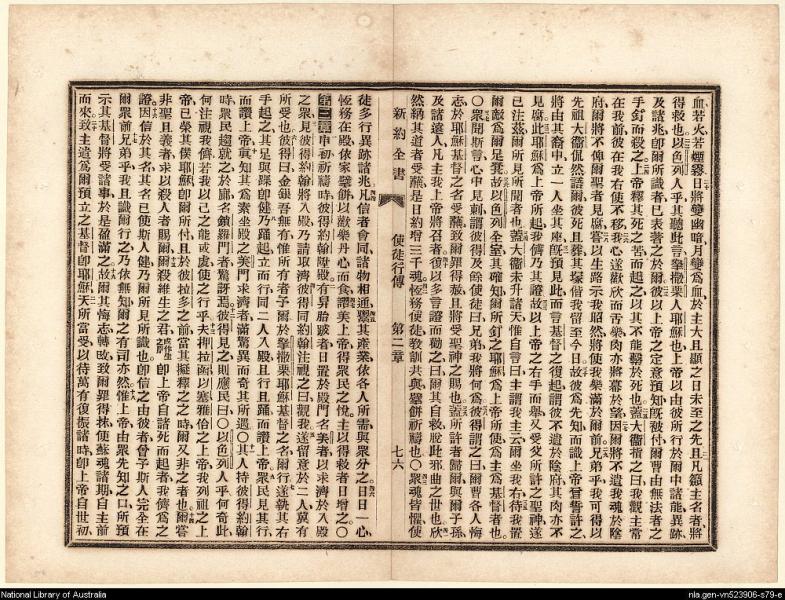 血若火若煙霧日將變幽暗月變爲血於主大且顯之日未至之先且凡籲主名者將
得救也以色列人乎其聽此言拏撒栗人耶穌也上帝以由彼所行於爾中諸能異跡
及諸兆卽爾所識者已表著之於爾以上帝之定意預知旣被付爾曹由無法者之
手釘而殺之上帝釋其死之苦而起之以其不能繫於死也蓋大衞指之曰我觀主常
在我前彼在我右使不移我心遂歡欣而舌樂肉亦將寓於望因爾將不遺我魂於陰
府爾將不俾爾聖者見腐嘗以生路示我昭然將使我樂滿於爾前兄弟乎我可得以
先祖大衞侃然語爾彼死且葬其塚偕我留至今日故彼爲先知而識上帝嘗誓許之
將由其裔中立一人坐其座旣預見此而言基督之復起謂彼不遺於陰府其肉亦不
見腐此耶穌爲上帝所起我儕乃其證故以上帝之右手而舉又受父所許之聖神遂
已注茲爾所見所聞者也蓋大衞未升諸天惟自言曰主謂我主云爾坐我右待我置
爾敵爲爾足凳故以色列全室其確知爾所釘之耶穌爲上帝所使爲主爲基督者也
〇衆聞斯言心中見刺謂彼得及餘使徒曰兄弟我將何爲彼得謂之曰爾曹各人悔
志於耶穌基督之名受蘸致爾罪得赦且將受聖神之賜也蓋所許者歸爾與爾子孫
及諸遠人凡主我上帝將召者復以多言證而勸之曰爾其自救脫此邪曲之世也欣
然納其道者受蘸是日約增三千魂恆務使徒敎訓共與擘餅祈禱也〇衆魂皆懼使
新約全書
使徒行傳
第二章
七六
徒多行異跡諸兆凡信者會同諸物相通鬻其產業依各人所需與衆分之日日一心
恆務在殿依家擘餅以歡樂丹心而食讚美上帝得衆民之悅主以得救者日增之〇
第三章申初祈禱時彼得約翰陞殿有昇胎跛者日置於殿門名美者以求濟於入殿
之衆見彼得約翰將入殿乃請取濟彼得同約翰注視之曰觀我遂留意於二人冀有
所受也彼得曰金銀吾無有惟所有者予爾於拏撒栗耶穌基督之名爾行遂執其右
手起之其足與踝卽健乃踊起立而行同二人入殿且行且踊而讚上帝衆民見其行
而讚上帝眞知其爲素坐殿之美門求濟者滿驚異而奇其所遇〇其人持彼得約翰
時衆民趨就之於廊名鎖羅門者驚訝焉彼得見之則應民曰〇以色列人乎何奇此
何注視我儕若我以己之能或虔使之行乎夫押拉函以塞雅佮之上帝我列祖之上
帝已榮其僕耶穌卽爾所付且於彼拉多之前當其擬釋之之時爾又非之者也爾嘗
非聖且義者求以殺人者賜爾殺維生之君卽上帝自諸死而起者我儕爲之
證因信於其名其名已使斯人健乃爾所見所識也卽信之由彼者曾予斯人完全在
爾衆前兄弟乎我且識爾行之乃依無知爾之有司亦然惟上帝由衆先知之口所預
示其基督將受諸事於是盈滿之故爾其悔志轉改致爾罪得抹使蘇魂諸期自主前
而來致主遣爲爾預立之基督卽耶穌天所當受以待萬有復振諸時卽上帝自世初
National Library of Australia
nla.gen-vn523906-s79-e